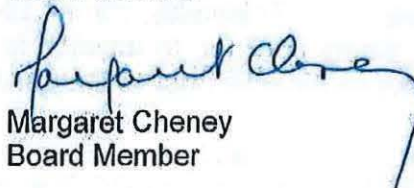 Margaret Cheney
Margaret Cheney
Board Member